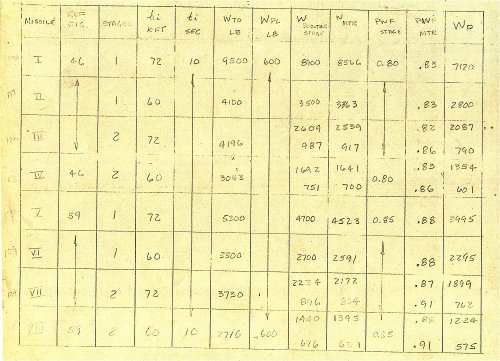 MISSILE REF FIG. STAGES hi KFT ti SEC WTO LB WPL LB W STAGE W MTR PMF STAGE PMF MTR WP
I 46 1 72 10 9500 600 8900 8566 0.80 .83 7120
II 1 60 4100 3500 3363 .83 2800
III 2 72 4196 2609 2539 .82 2087
987 917 .86 790
IV 46 2 60 3043 1692 1641 0.80 .83 1354
751 700 .86 601
V 59 1 72 5300 4700 4523 0.85 .88 3995
VI 1 60 3300 2700 2591 .88 2295
VII 2 72 3730 2234 2172 .87 1899
896 834 .91 762
VIII 59 2 60 10 2716 600 1440 1395 .88 1224
676 631 .91 575